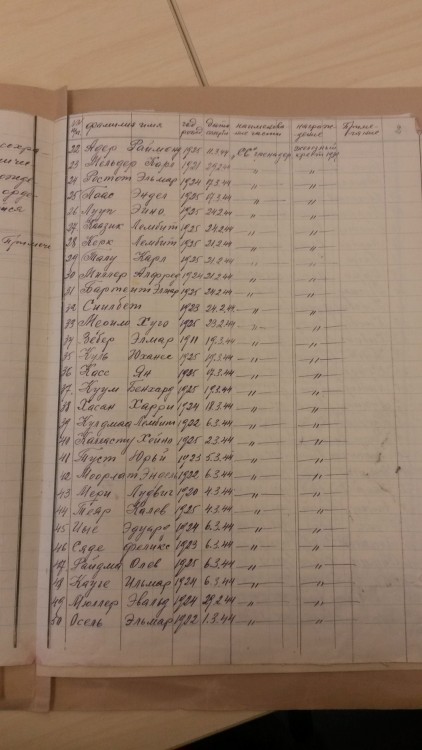 № п/п фамилия имя год рожд дата смерти наименова- ние части награж- дение Приме- чание
22 Адор Раймонд 1925 11.3.44 "СС" гренадер железный крест
23 Мельдер Карл 1921 29.2.44 " "
24 Ростот Эльмар 1924 17.3.44 " "
25 Паас Эндел 1925 17.3.44 " "
26 Лууп Эйно 1925 24.2.44 " "
27 Каазик Лембит 1925 24.2.44 " "
28 Корк Лембит 1925 21.2.44 " "
29 Талу Карл 1925 21.2.44 " "
30 Миллер Алфред 1924 21.2.44 " "
31 Бартейт Элмар 1925 24.2.44 " "
32 Снилбет 1923 24.2.44 " "
33 Меоим Хуго 1925 23.2.44 " "
34 Зебер Элмар 1911 19.3.44 " "
35 Куль Юханес 1925 19.3.44 " "
36 Касс Ян 1925 17.3.44 " "
37 Куум Бенхард 1925 19.3.44 " "
38 Хасан Харри 1924 18.3.44 " "
39 Лембит 1922 6.3.44 " "
40 Камасту Хейно 1925 2.3.44 " "
41 Туст Юрьй 1923 5.3.44 " "
42 Моорлат Эндель 1922 6.3.44 " "
43 Мери Лудвиг 1920 4.3.44 " "
44 Теяр Калев 1925 4.3.44 " "
45 Иые Эдуард 1924 6.3.44 " "
46 Сяде феликс 1923 6.3.44 " "
47 Найдма Олев 1925 6.3.44 " "
48 Кауге Ильмар 1924 6.3.44 " "
49 Мюллер Эвальд 1924 29.2.44 " "
50 Осель Эльмар 1922 1.3.44 " "